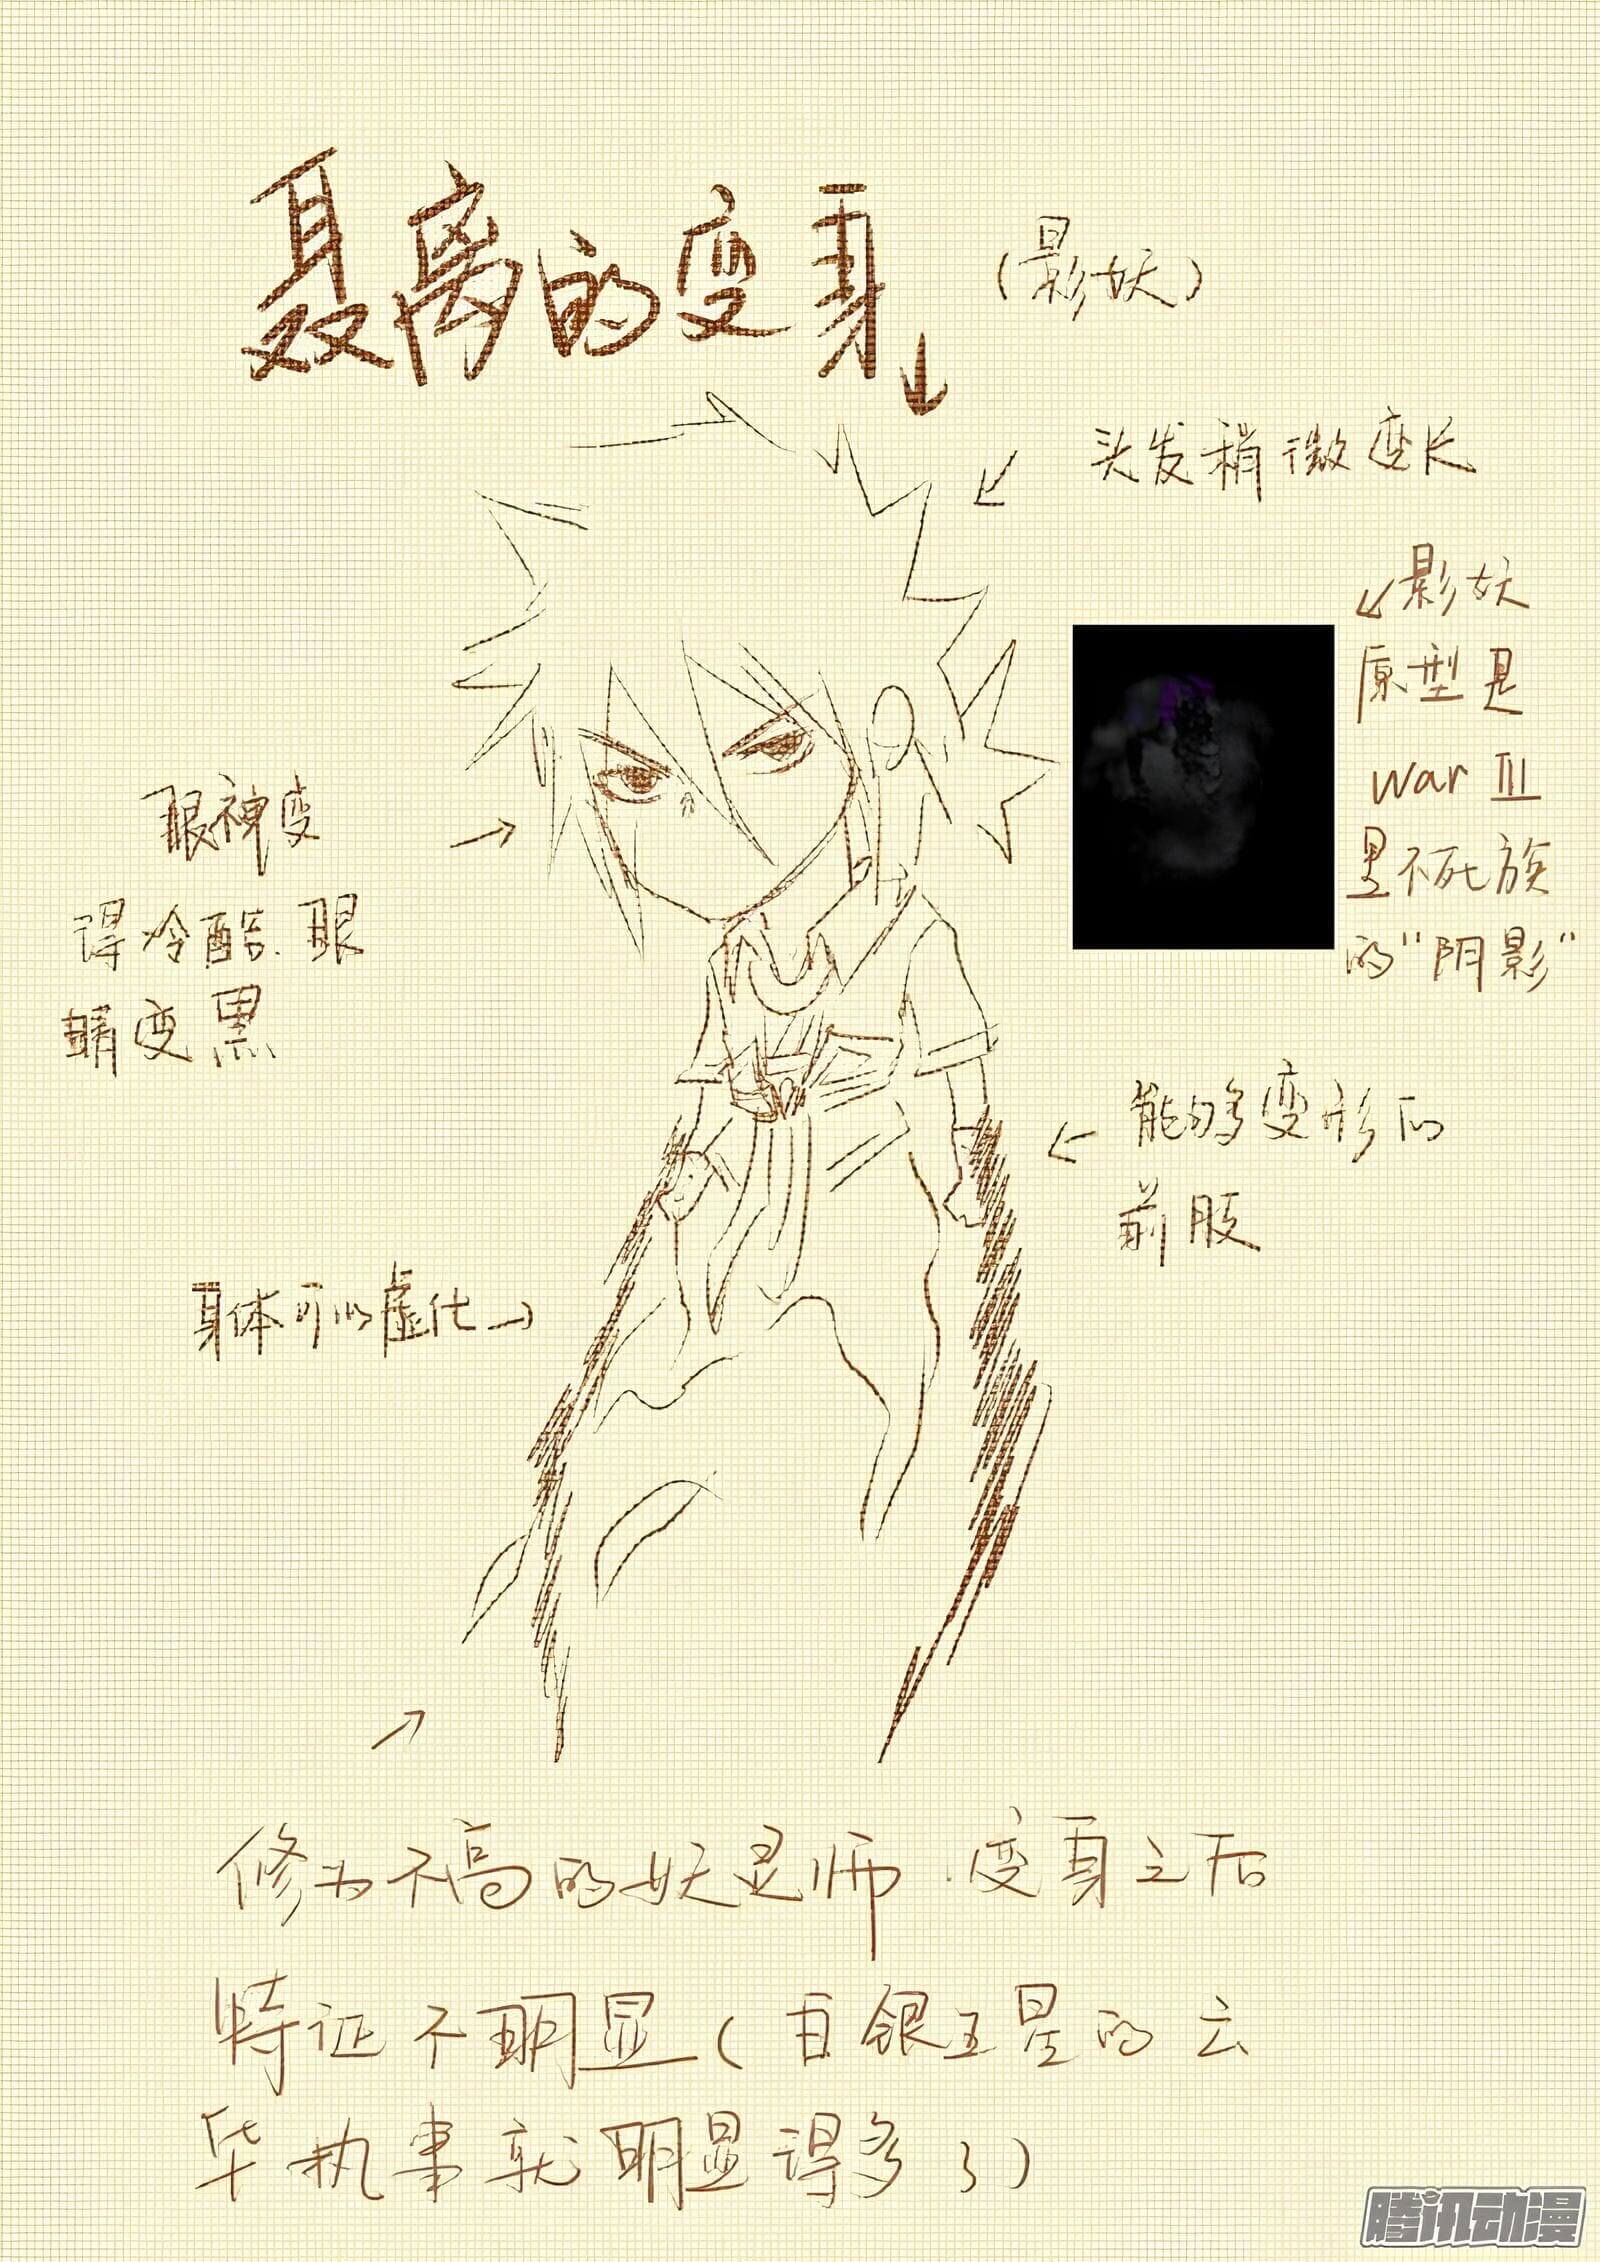 聂离的变身
(影妖)
头发稍微变长
影妖
原型是
war III
里不死族
的“阴影”
眼神变
得冷酷、眼
睛变黑
能够变形的
前肢
身体可以虚化
修为不高的妖灵师、变身之后
特征不明显(白银五星的云
华执事就明显得多了)
腾讯动漫